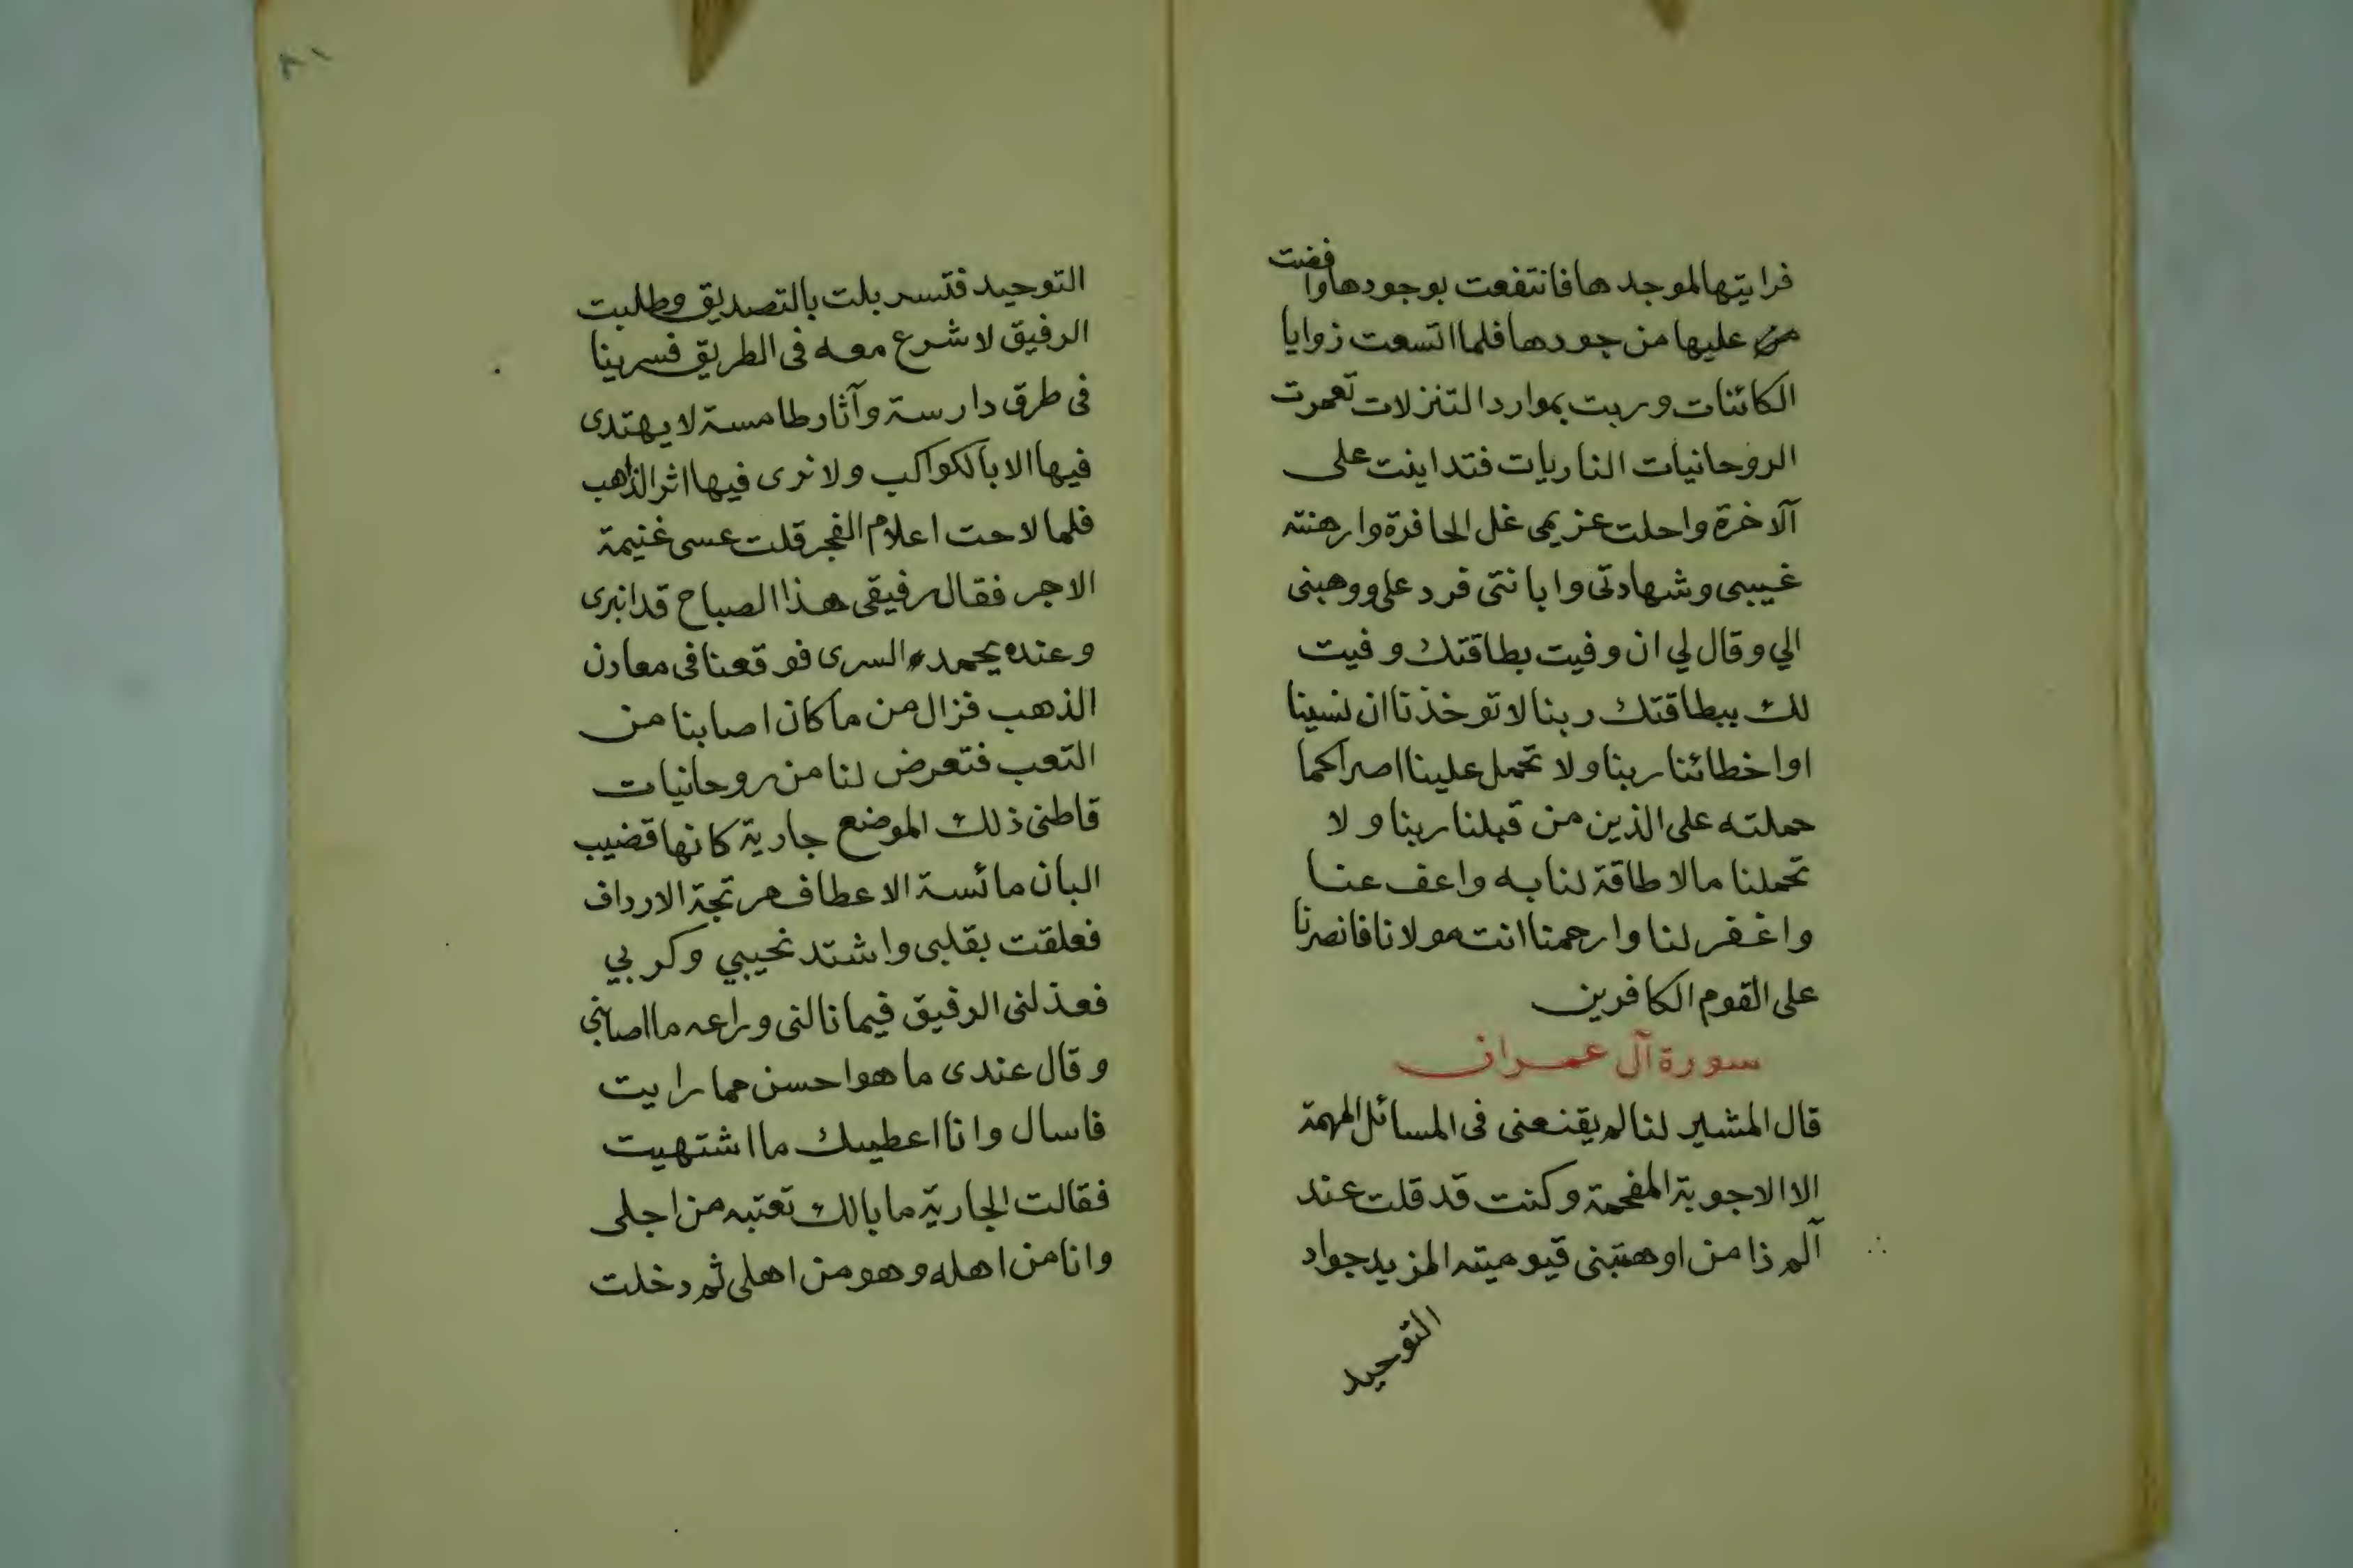 فرايتها لموجدها فانتفعت بوجودها وافضت
عليها من جودها فلما اتسعت زوايا
الكائنات وربت بموارد التنزلات تعمرت
الروحانيات الناريات فتداينت على
آلاخرة واحلت عزيمى غل الحافرة وارهنته
غيبى وشهادتى وابانتى فرد على ووهبنى
الي وقال لي ان وفيت بطاقتك وفيت
لك ببطاقتك ربنا لا توخذنا ان نسينا
او اخطائنا ربنا ولا تحمل علينا اصرا كما
حملته على الذين من قبلنا ربنا ولا
تحملنا مالا طاقة لنا به واعف عنا
واغفر لنا وارحمنا انت مولانا فانصرنا
على القوم الكافرين
سورة آل عمران
قال المشير لنا لم يقنعنى فى المسائل المهمة
الا الاجوبة المفحمة وكنت قد قلت عند
آلم ذا من اوهبتنى قيوميته المزيد جواد
التوحيد
التوحيد فتسربلت بالتصديق وطلبت
الرفيق لاشرع معه فى الطريق فسرينا
فى طرق دارسة وآثار طامسة لا يهتدى
فيها الا بالكواكب ولا نرى فيها اثر الذاهب
فلما لاحت اعلام الفجر قلت عسى غنيمة
الاجر فقال رفيقى هذا الصباح قد انبرى
وعنده يحمد السرى فوقعنا فى معادن
الذهب فزال من ما كان اصابنا من
التعب فتعرض لنا من روحانيات
قاطنى ذلك الموضع جارية كانها قضيب
البان مائسة الاعطاف مرتجة الارداف
فعلقت بقلبى واشتد نحيبي وكربي
فعذلنى الرفيق فيما نالنى وراعه ما اصابنى
وقال عندى ما هو احسن مما رايت
فاسال وانا اعطيك ما اشتهيت
فقالت الجارية ما بالك تعتبه من اجلى
وانا من اهله وهو من اهلى ثم دخلت